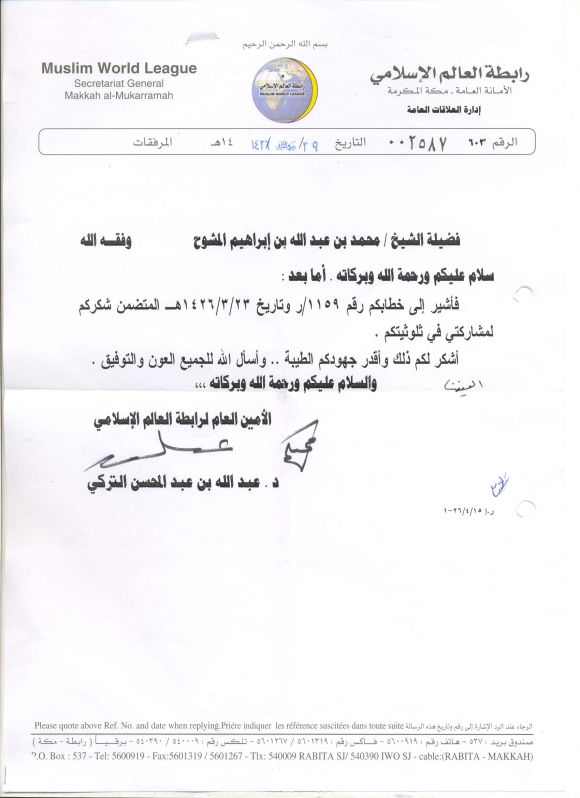 بسم الله الرحمن الرحيم
Muslim World League
Secretariat General
Makkah al-Mukarramah
رابطة العالم الإسلامي
MUSLIM WORLD LEAGUE
رابطة العالم الإسلامي
الأمانة العامة . مكة المكرمة
إدارة العلاقات العامة
الرقم ٦٠٣ ٠٠٢٥٨٧ التاريخ ٢٩/ ١٤٢٦ ١٤هـ المرفقات
فضيلة الشيخ / محمد بن عبد الله بن إبراهيم المشوح وفقـــه الله
سلام عليكم ورحمة الله وبركاته . أما بعد :
فأشير إلى خطابكم رقم ١١٥٩/ر وتاريخ ١٤٢٦/٣/٢٣هـــ المتضمن شكركم
لمشاركتي في ثلوثيتكم .
أشكر لكم ذلك وأقدر جهودكم الطيبة .. وأسأل الله للجميع العون والتوفيق .
والسلام عليكم ورحمة الله وبركاته ،،،
الأمين العام لرابطة العالم الإسلامي
د . عبد الله بن عبد المحسن التركي
ر.إ ٢٦/٤/١٥-١
Please quote above Ref. No. and date when replying.Priére indiquer les référence suscitées dans toute suite الرجاء عند الرد الإشارة إلى رقم وتاريخ هذه الرسالة
صندوق بريد : ٥٣٧ - هاتف رقم : ٥٦٠٠٩١٩ - فـاكس رقم : ٥٦٠١٣١٩ / ٥٦٠١٢٦٧ - تلكس رقم : ٥٤٠٠٠٩ / ٥٤٠٣٩٠ - برقيـــاً ( رابطة - مكة )
P.O. Box : 537 - Tel: 5600919 - Fax:5601319 / 5601267 - Tlx: 540009 RABITA SJ/ 540390 IWO SJ - cable:(RABITA - MAKKAH)